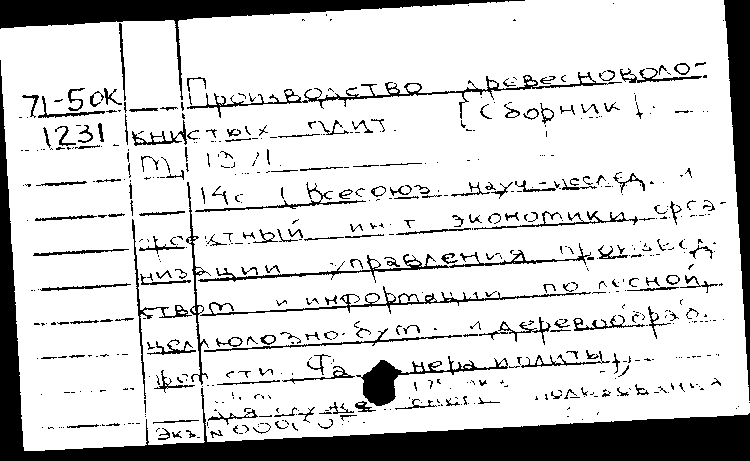 71-5 ОК Производство древесноволо-
1231 книстых плит. [Сборник].
М, 1971.
14с (Всесоюз. науч-исслед. и
проектный ин-т экономики, орга-
низации управления производ-
ством и информации по лесной,
целлюлозно-бум. и деревообраб.
пром-сти. Фанера и плиты),
для служе польз
Экз. N